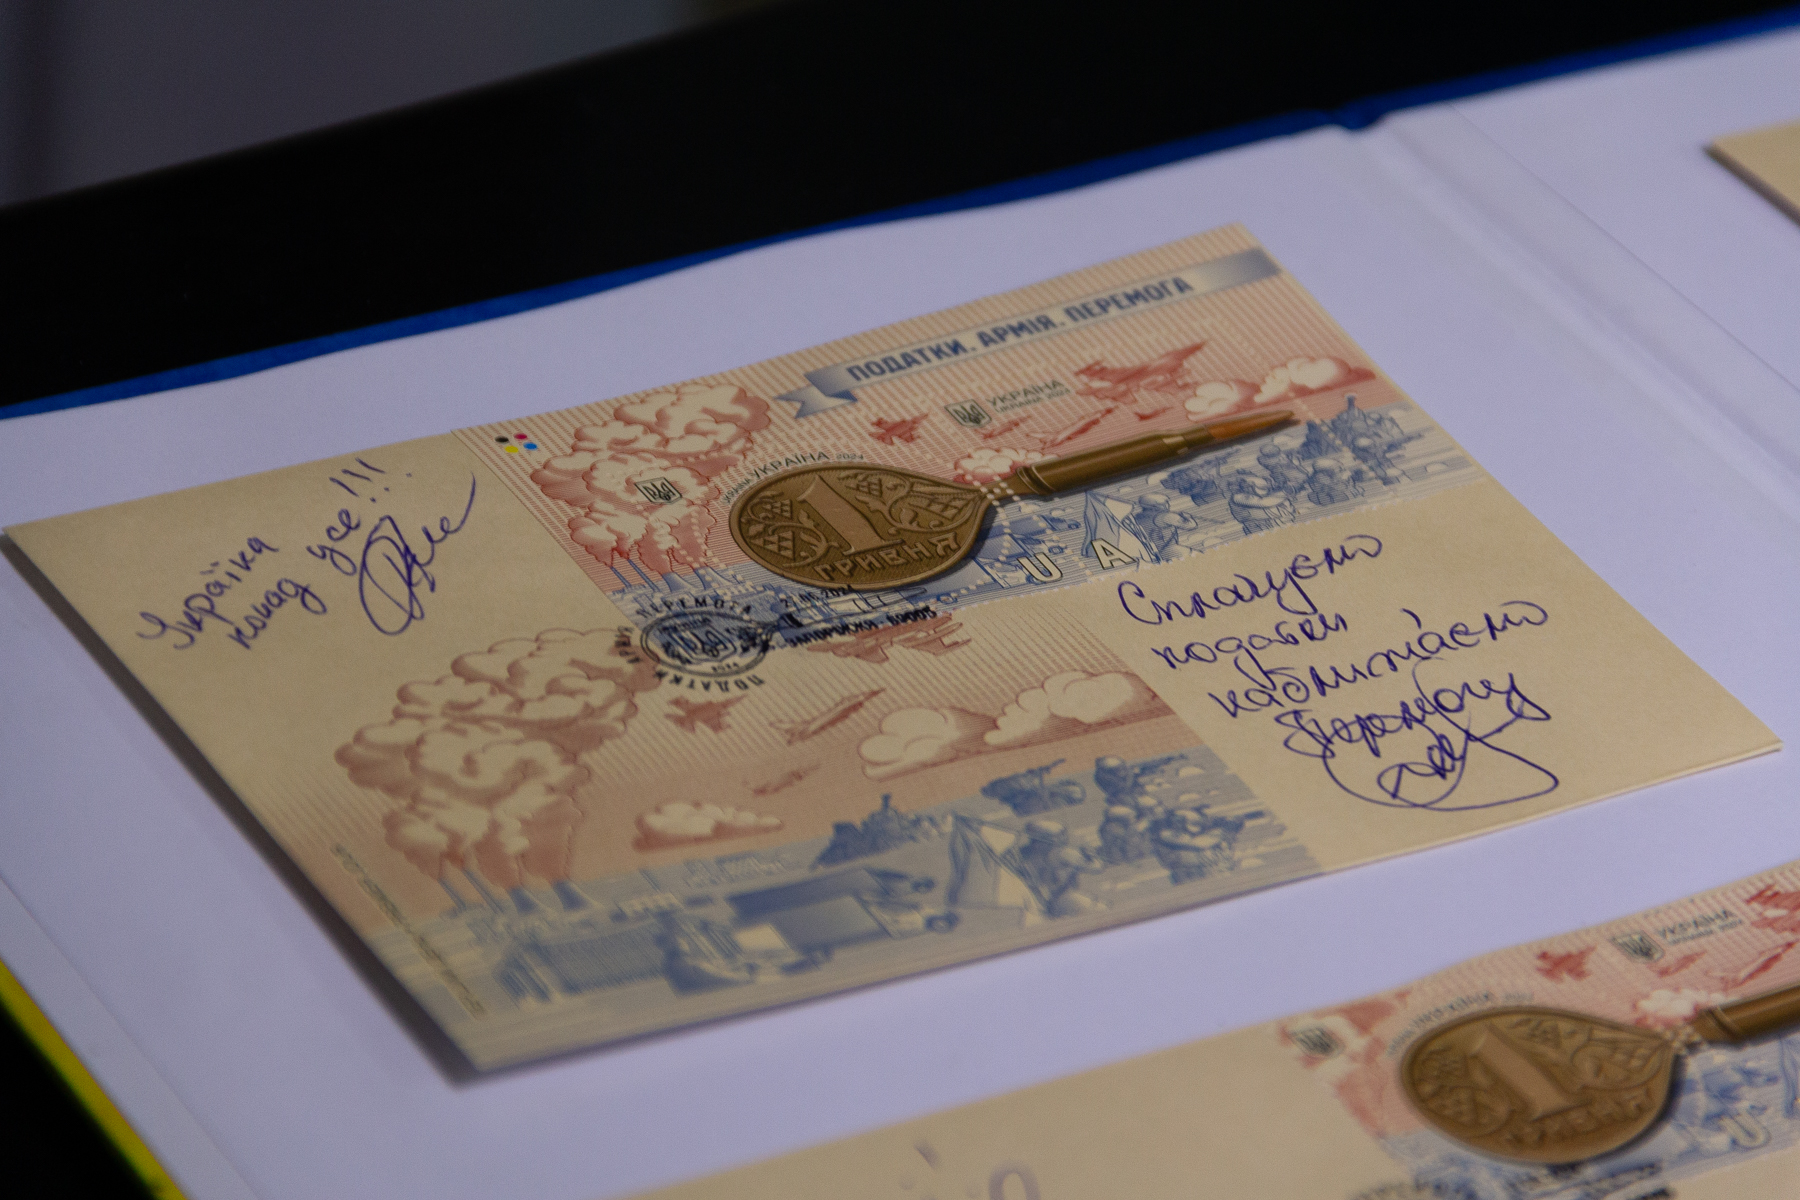 ПОДАТКИ. АРМІЯ. ПЕРЕМОГА
УКРАЇНА
UKRAINE 2024
UKRAINE УКРАЇНА 2024
1
ГРИВНЯ
U A
Україна
понад усе!!!
ПЕРЕМОГА
ПОДАТКИ АРМІЯ
2024
ЗАПОРІЖЖЯ - 69005
Сплачуємо
податки
наближаємо
Перемогу
УКРАЇНА
1
ГРИВНЯ
U